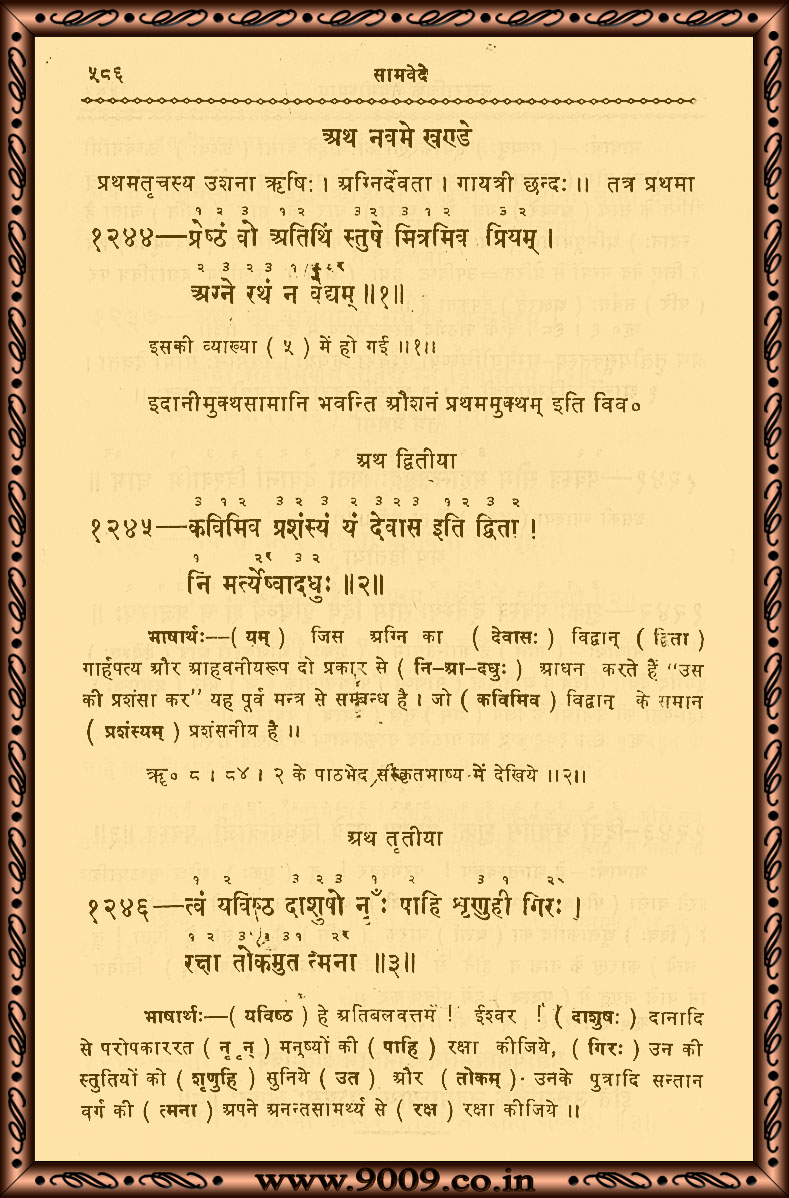 ५८६ सामवेदे
अथ नवमे खण्डे
प्रथमतृचस्य उशना ऋषिः । अग्निर्देवता । गायत्री छन्दः ॥ तत्र प्रथमा
१ २ ३ १ २ ३ २ ३ १ २ ३ २
१२४४—प्रेष्ठं वो अतिथिं स्तुषे मित्रमिव प्रियम् ।
२ ३ २ ३ १
अग्ने रथं न वेद्यम् ॥१॥
इसकी व्याख्या ( ५ ) में हो गई ॥१॥
इदानीमुक्थसामानि भवन्ति औशनं प्रथममुक्थम् इति विव०
अथ द्वितीया
३ १ २ ३ २ ३ २ ३ २ ३ १ २ ३ २
१२४५—कविमिव प्रशंस्यं यं देवास इति द्विता !
१ २र ३ २
नि मर्त्येष्वादधुः ॥२॥
भाषार्थः—( यम् ) जिस अग्नि का ( देवासः ) विद्वान् ( द्विता )
गार्हपत्य और आहवनीयरूप दो प्रकार से ( नि-आ-दधुः ) आधन करते हैं “उस
की प्रशंसा कर” यह पूर्व मन्त्र से सम्बन्ध है । जो ( कविमिव ) विद्वान् के समान
( प्रशंस्यम् ) प्रशंसनीय है ॥
ऋ० ८ । ८४ । २ के पाठभेद संस्कृतभाष्य में देखिये ॥२॥
अथ तृतीया
१ २ ३ २ ३ १ २ ३ १ २र
१२४६—त्वं यविष्ठ दाशुषो नॄँः पाहि शृणुही गिरः ।
१ २ ३ ३ १ २र
रक्षा तोकमुत त्मना ॥३॥
भाषार्थः—( यविष्ठ ) हे अतिबलवत्तम ! ईश्वर ! ( दाशुषः ) दानादि
से परोपकाररत ( नॄन् ) मनुष्यों की ( पाहि ) रक्षा कीजिये, ( गिरः ) उन की
स्तुतियों को ( शृणुहि ) सुनिये ( उत ) और ( तोकम् ) उनके पुत्रादि सन्तान
वर्ग की ( त्मना ) अपने अनन्तसामर्थ्य से ( रक्ष ) रक्षा कीजिये ॥
www.9009.co.in